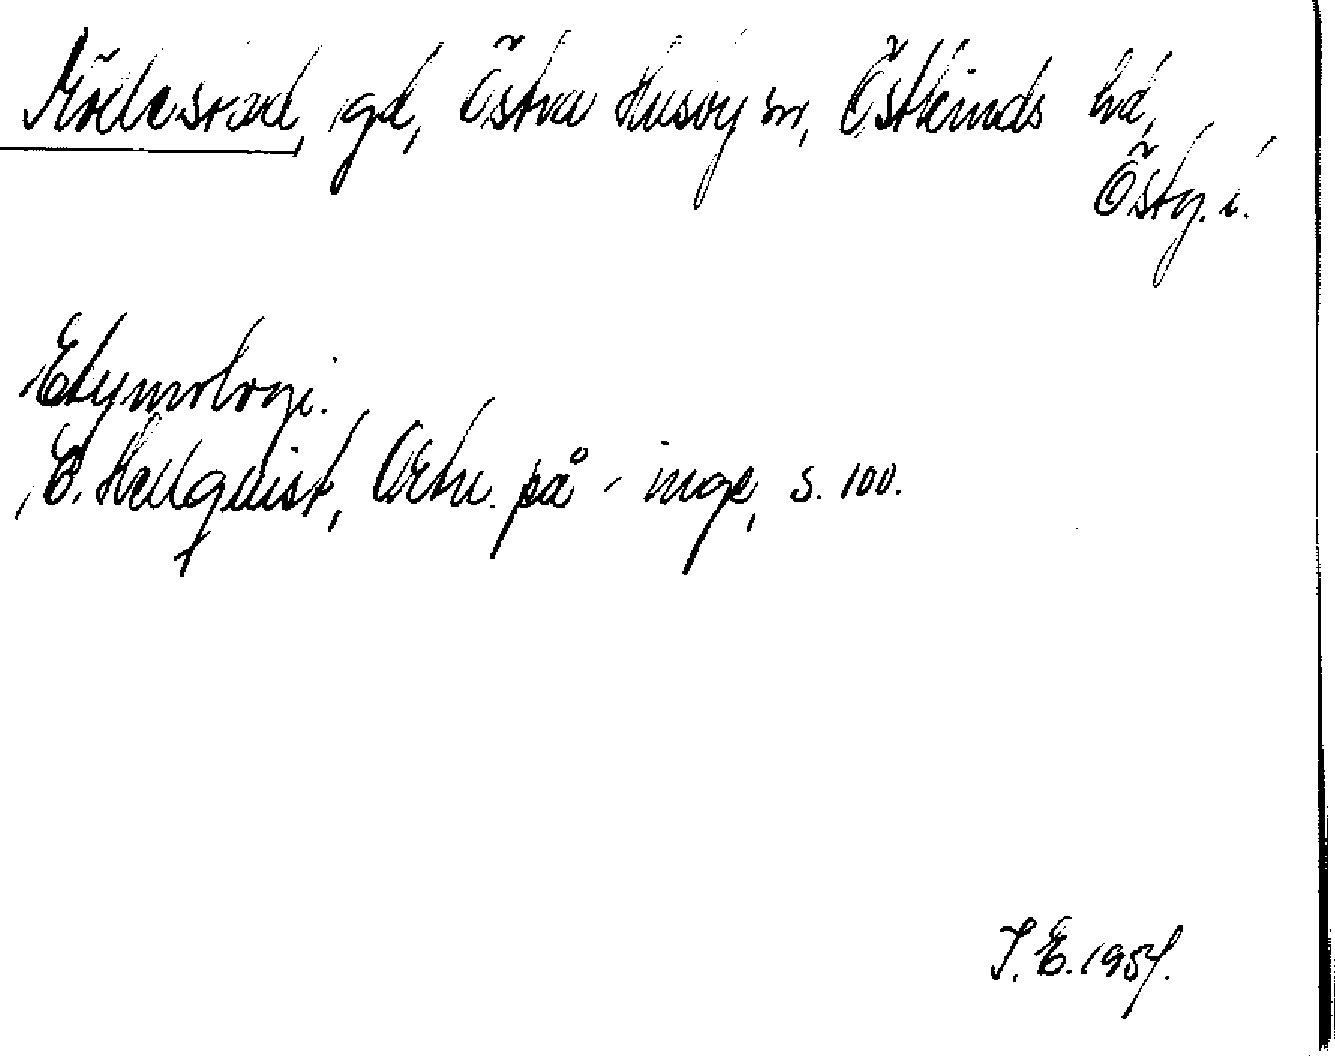 Mölestad, gd, Östra Husby sn, Östkinds hd,
Östg. l.
Etymologi.
E. Hellquist, Ortn. på -inge, s. 100.
I. E. 1954.